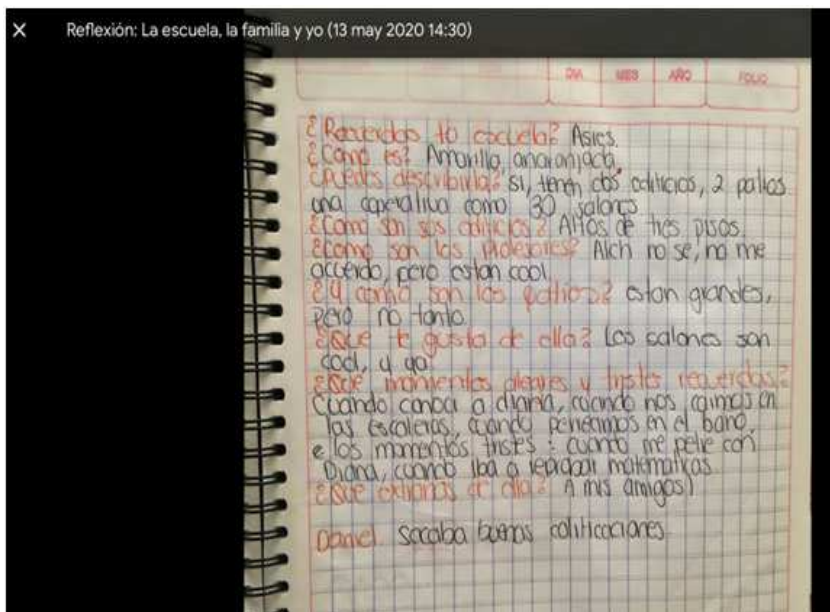 Reflexión: La escuela, la familia y yo (13 may 2020 14:30)
DIA MES AÑO FOLIO
¿Recuerdas tu escuela? Asies.
¿Como es? Amarilla anaranjada.
¿Puedes describirla? si, tienen dos edificios, 2 patios
una coperativa como 30 salones
¿Como son sus edificios? Altos de tres pisos.
¿como son los profesores? Alch no se, no me
acuerdo, pero estan cool.
¿Y como son los patios? estan grandes,
pero no tanto.
¿Que te gusta de ella? Los salones son
cool, y ya.
¿Que momentos alegres y tristes recuerdas?
Cuando conoci a diana, cuando nos caimos en
las escaleras, cuando peleamos en el baño,
e los momentos tristes: cuando me pelie con
Diana, cuando iba a reprobar matematicas
¿Que extrañas de ella? A mis amigos)
Daniel. Sacaba buenas calificaciones.